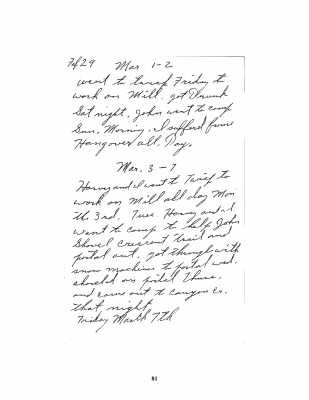 Feb 29 Mar 1-2
went to Twisp Friday to
work on Mill. got Drunk
Sat night. John went to camp
Sun. Morning. I suffered from
Hangover all Day.
Mar. 3-7
Harvey and I went to Twisp to
work on Mill all day Mon
the 3rd. Tues. Harvey and I
went to camp to help John
Shovel crescent trail and
portal out. got through with
snow machines to portal wed.
shoveled on portal Thurs.
and came out to canyon Cr.
that night
Friday March 7th
81